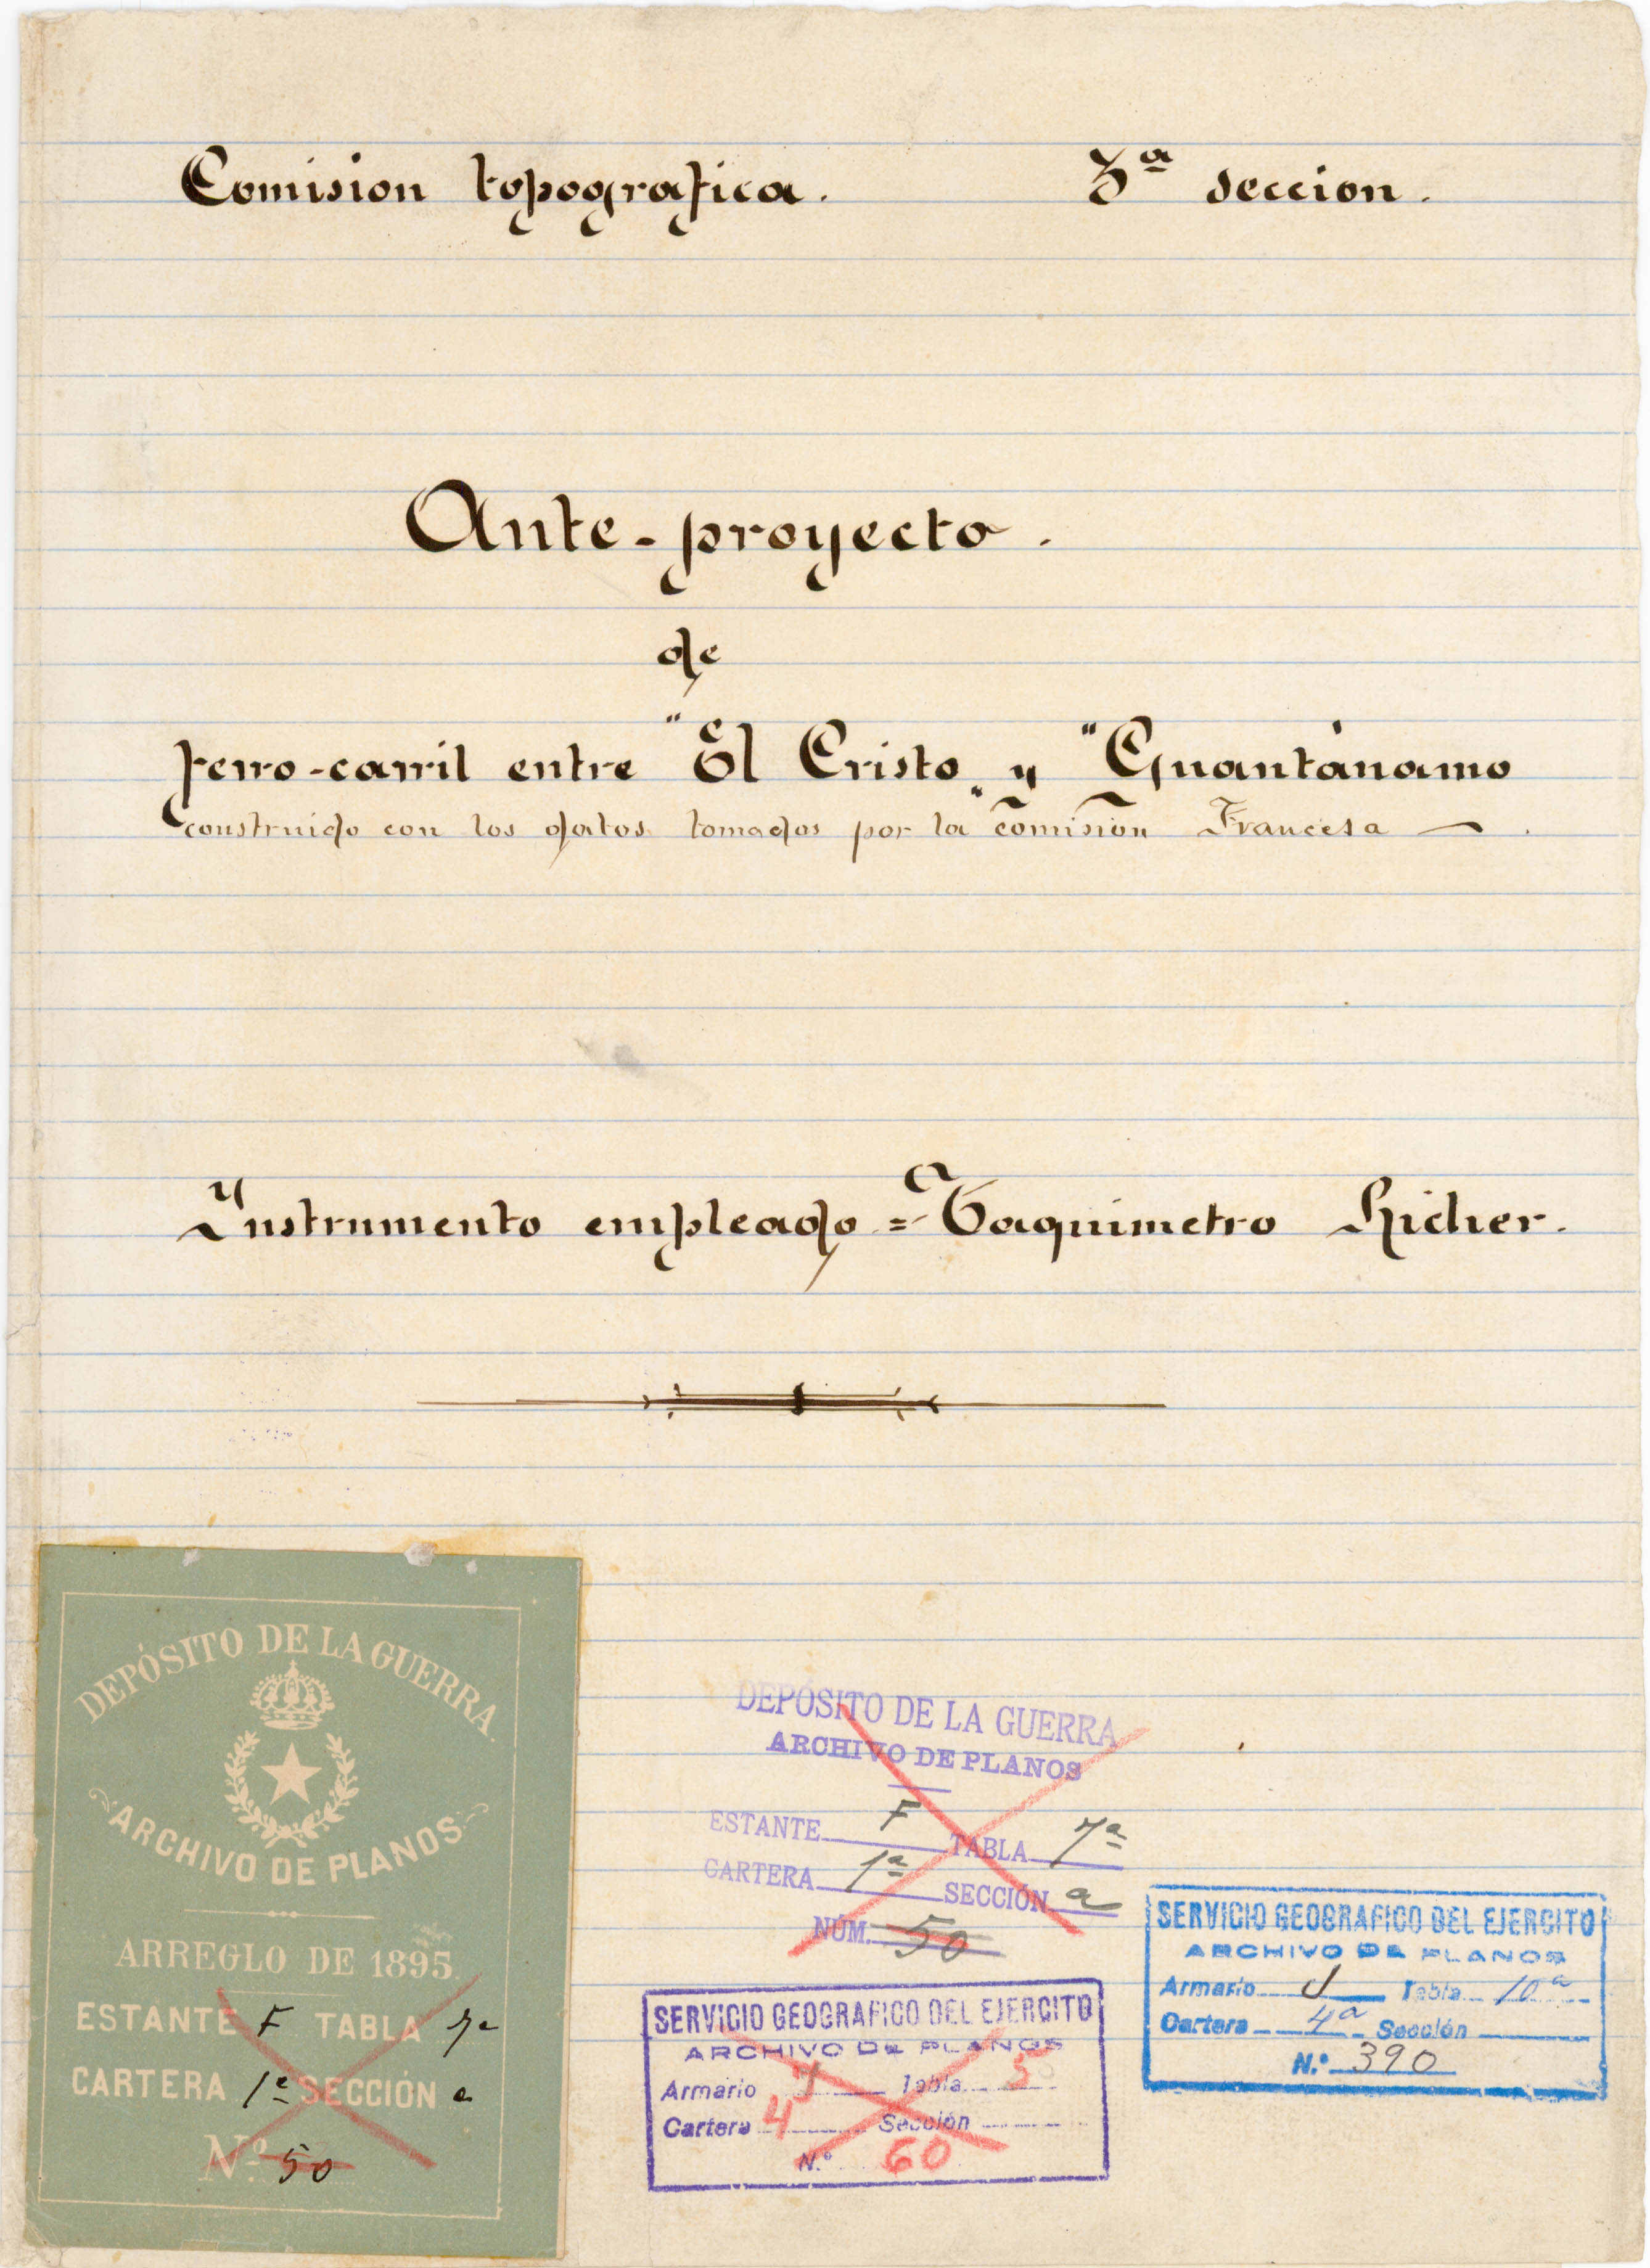 Comision topografica. 3ª seccion.
Ante-proyecto.
de
ferro-carril entre "El Cristo" y "Guantánamo
construido con los datos tomados por la comision Francesa —.
Instrumento empleado = Taquimetro Richer.
DEPÓSITO DE LA GUERRA.
ARCHIVO DE PLANOS
ARREGLO DE 1895.
ESTANTE F TABLA 7ª
CARTERA 1ª SECCIÓN a
Nº 50
DEPÓSITO DE LA GUERRA
ARCHIVO DE PLANOS
ESTANTE F TABLA 7ª
CARTERA 1ª SECCIÓN a
NÚM. 50
SERVICIO GEOGRAFICO DEL EJERCITO
ARCHIVO DE PLANOS
Armario J Tabla 5
Cartera 4 Sección
N.º 60
SERVICIO GEOGRAFICO DEL EJERCITO
ARCHIVO DE PLANOS
Armario J Tabla 10ª
Cartera 4ª Sección
N.º 390